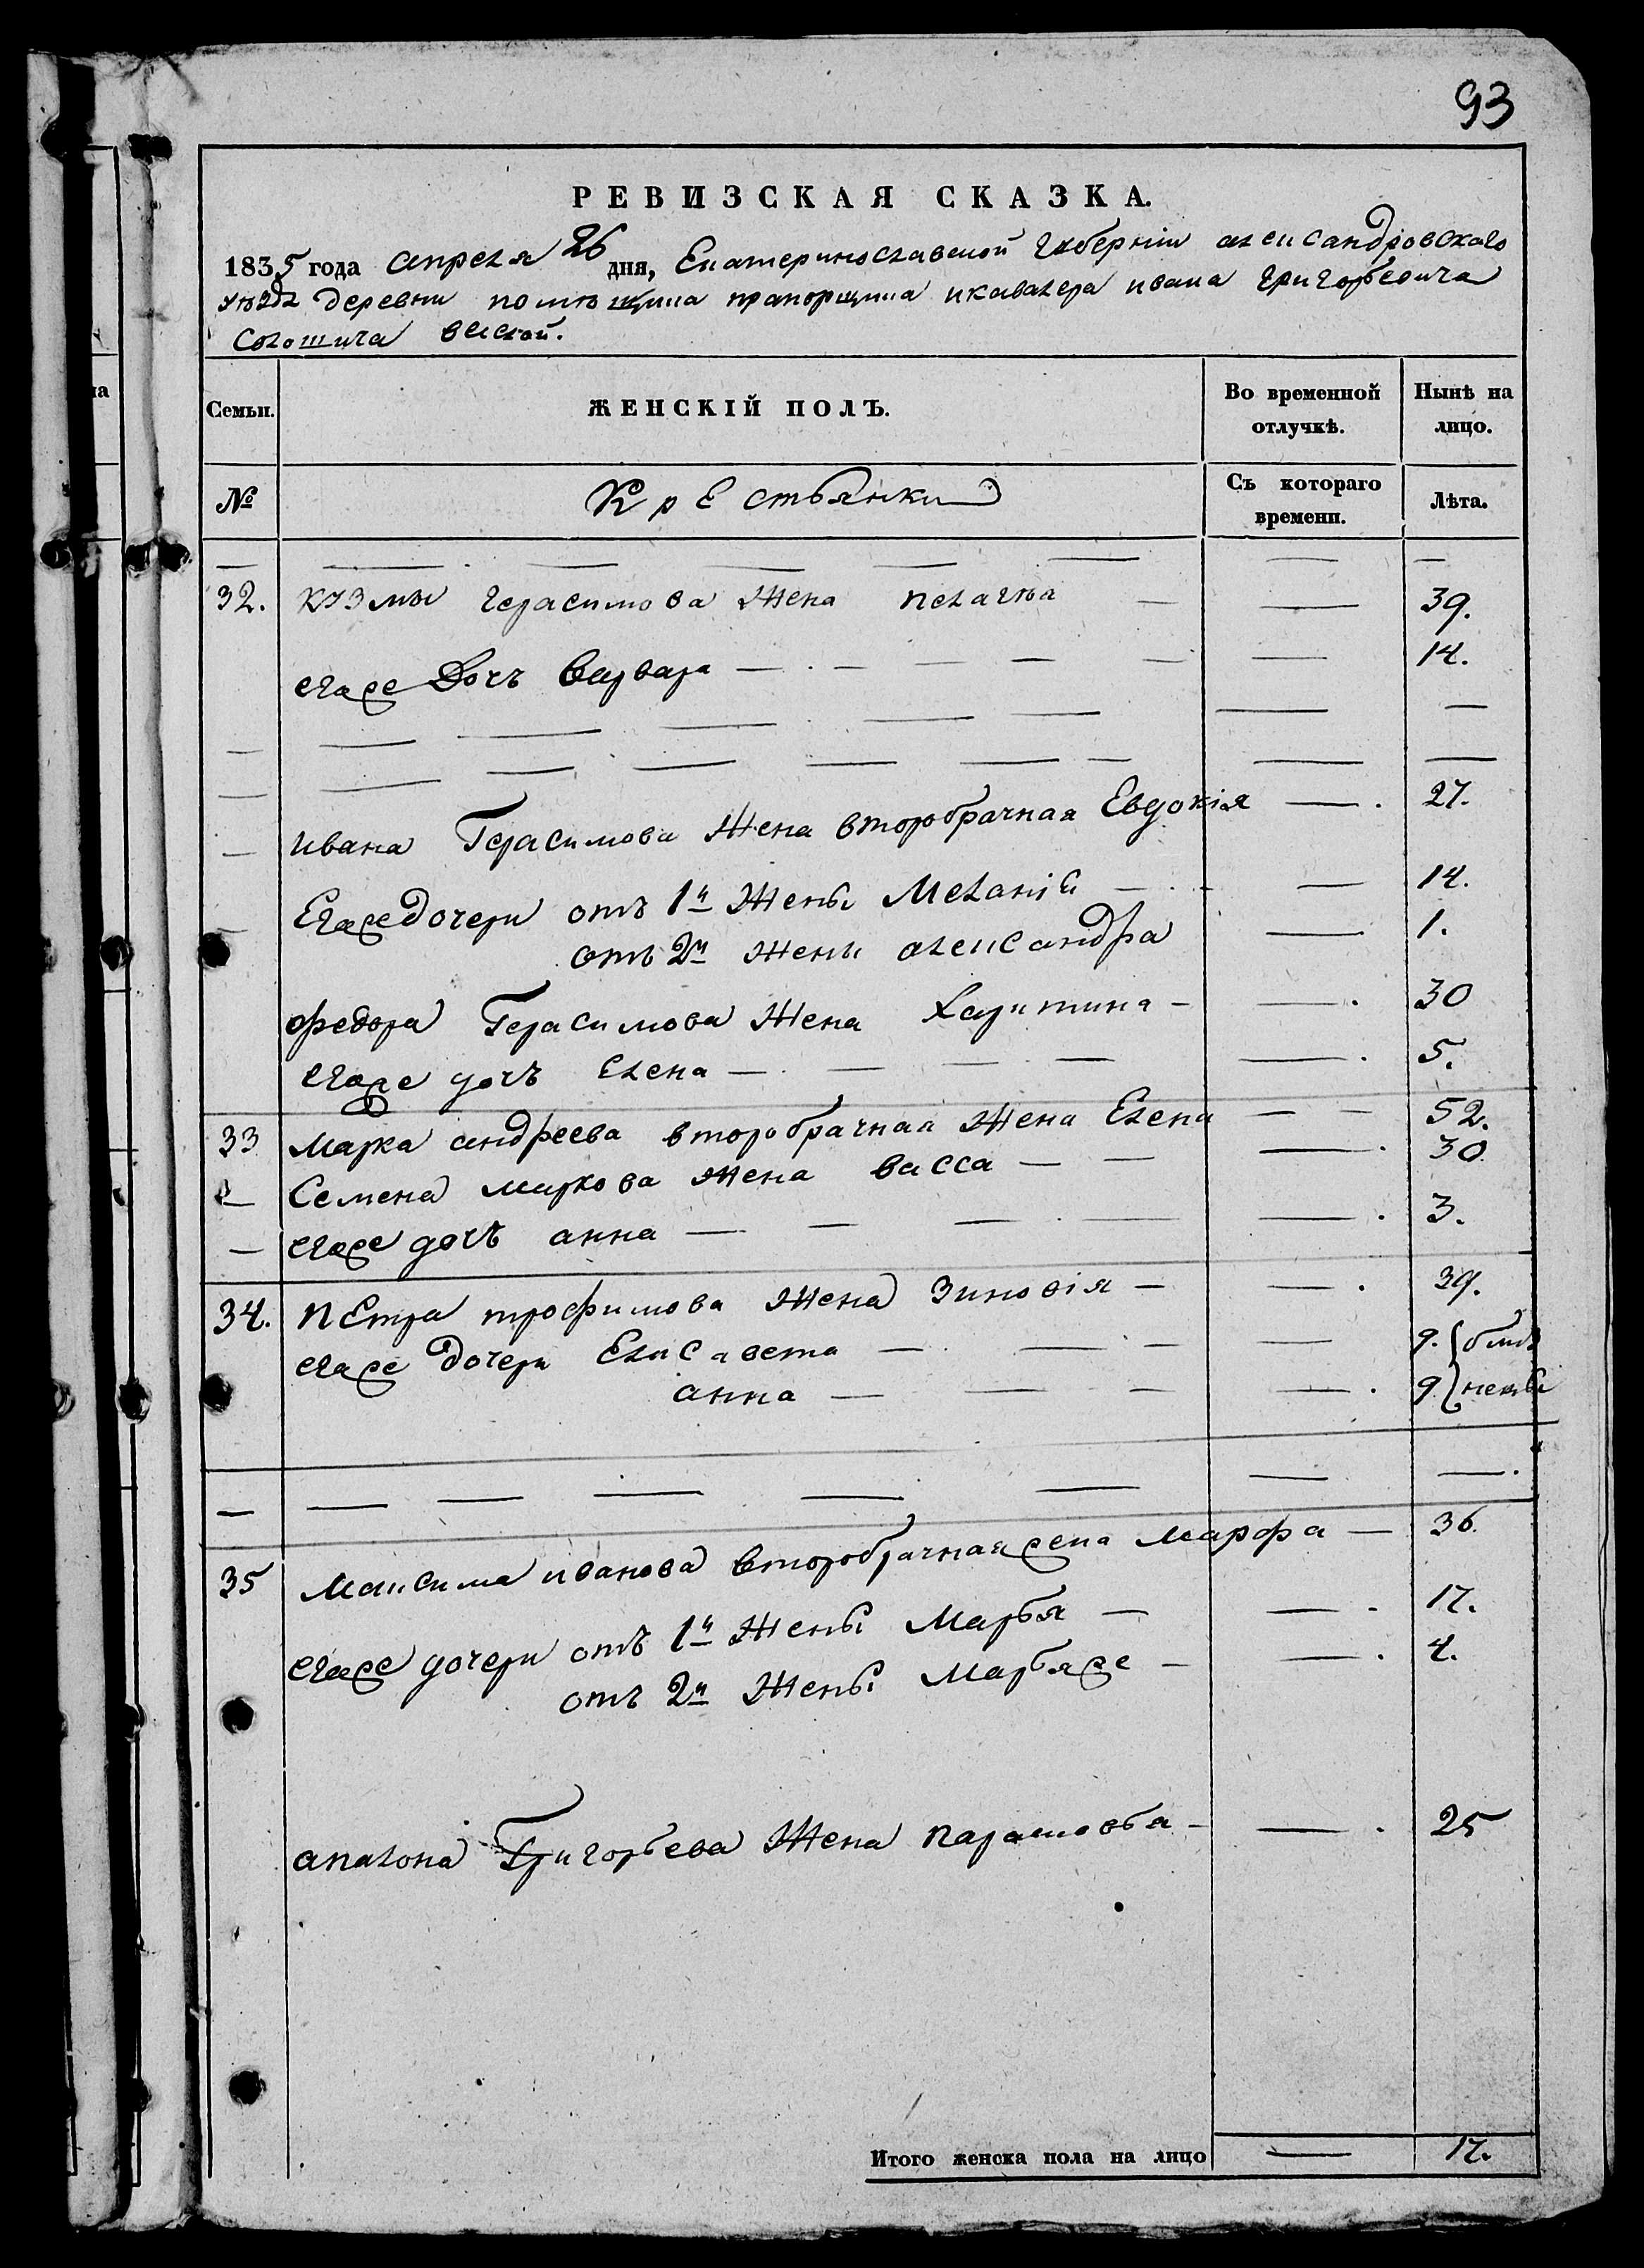 93
РЕВИЗСКАЯ СКАЗКА.
1835 года апреля 26 дня, Екатеринославской губерніи александровскаго
уѣзда деревни помѣщика прапорщика икавалера ивана григорьевича
женскій полъ.
Семьи. ЖЕНСКІЙ ПОЛЪ. Во временной отлучкѣ. Нынѣ на лицо.
№ Крестьянки Съ котораго времени. Лѣта.
32. кузмы герасимова жена пелагѣа — — 39.
егоже Дочъ варвара — — — — — — 14.
— ивана Герасимова жена второбрачная Евдокія — 27.
Егоже дочери отъ 1й жены Меланія — — 14.
отъ 2й жены александра — 1.
федора Герасимова жена Харитина — — 30
егоже дочъ елена — — — — — 5.
33 марка андреева второбрачная жена Елена — — 52.
— Семена маркова жена васса — — — 30
— егоже дочъ анна — — — — — 3.
34. петра трофимова жена зиновія — — 39.
егоже дочери Елисавета — — — — 9.
анна — — — — 9.
35 максима иванова второбрачнаяжена марфа — 36.
егоже дочери отъ 1й жены Марья — — 17.
отъ 2й жены Марьяже — — 4.
апалона Григорьева жена парасковья — — 25
Итого женска пола на лицо — 17.